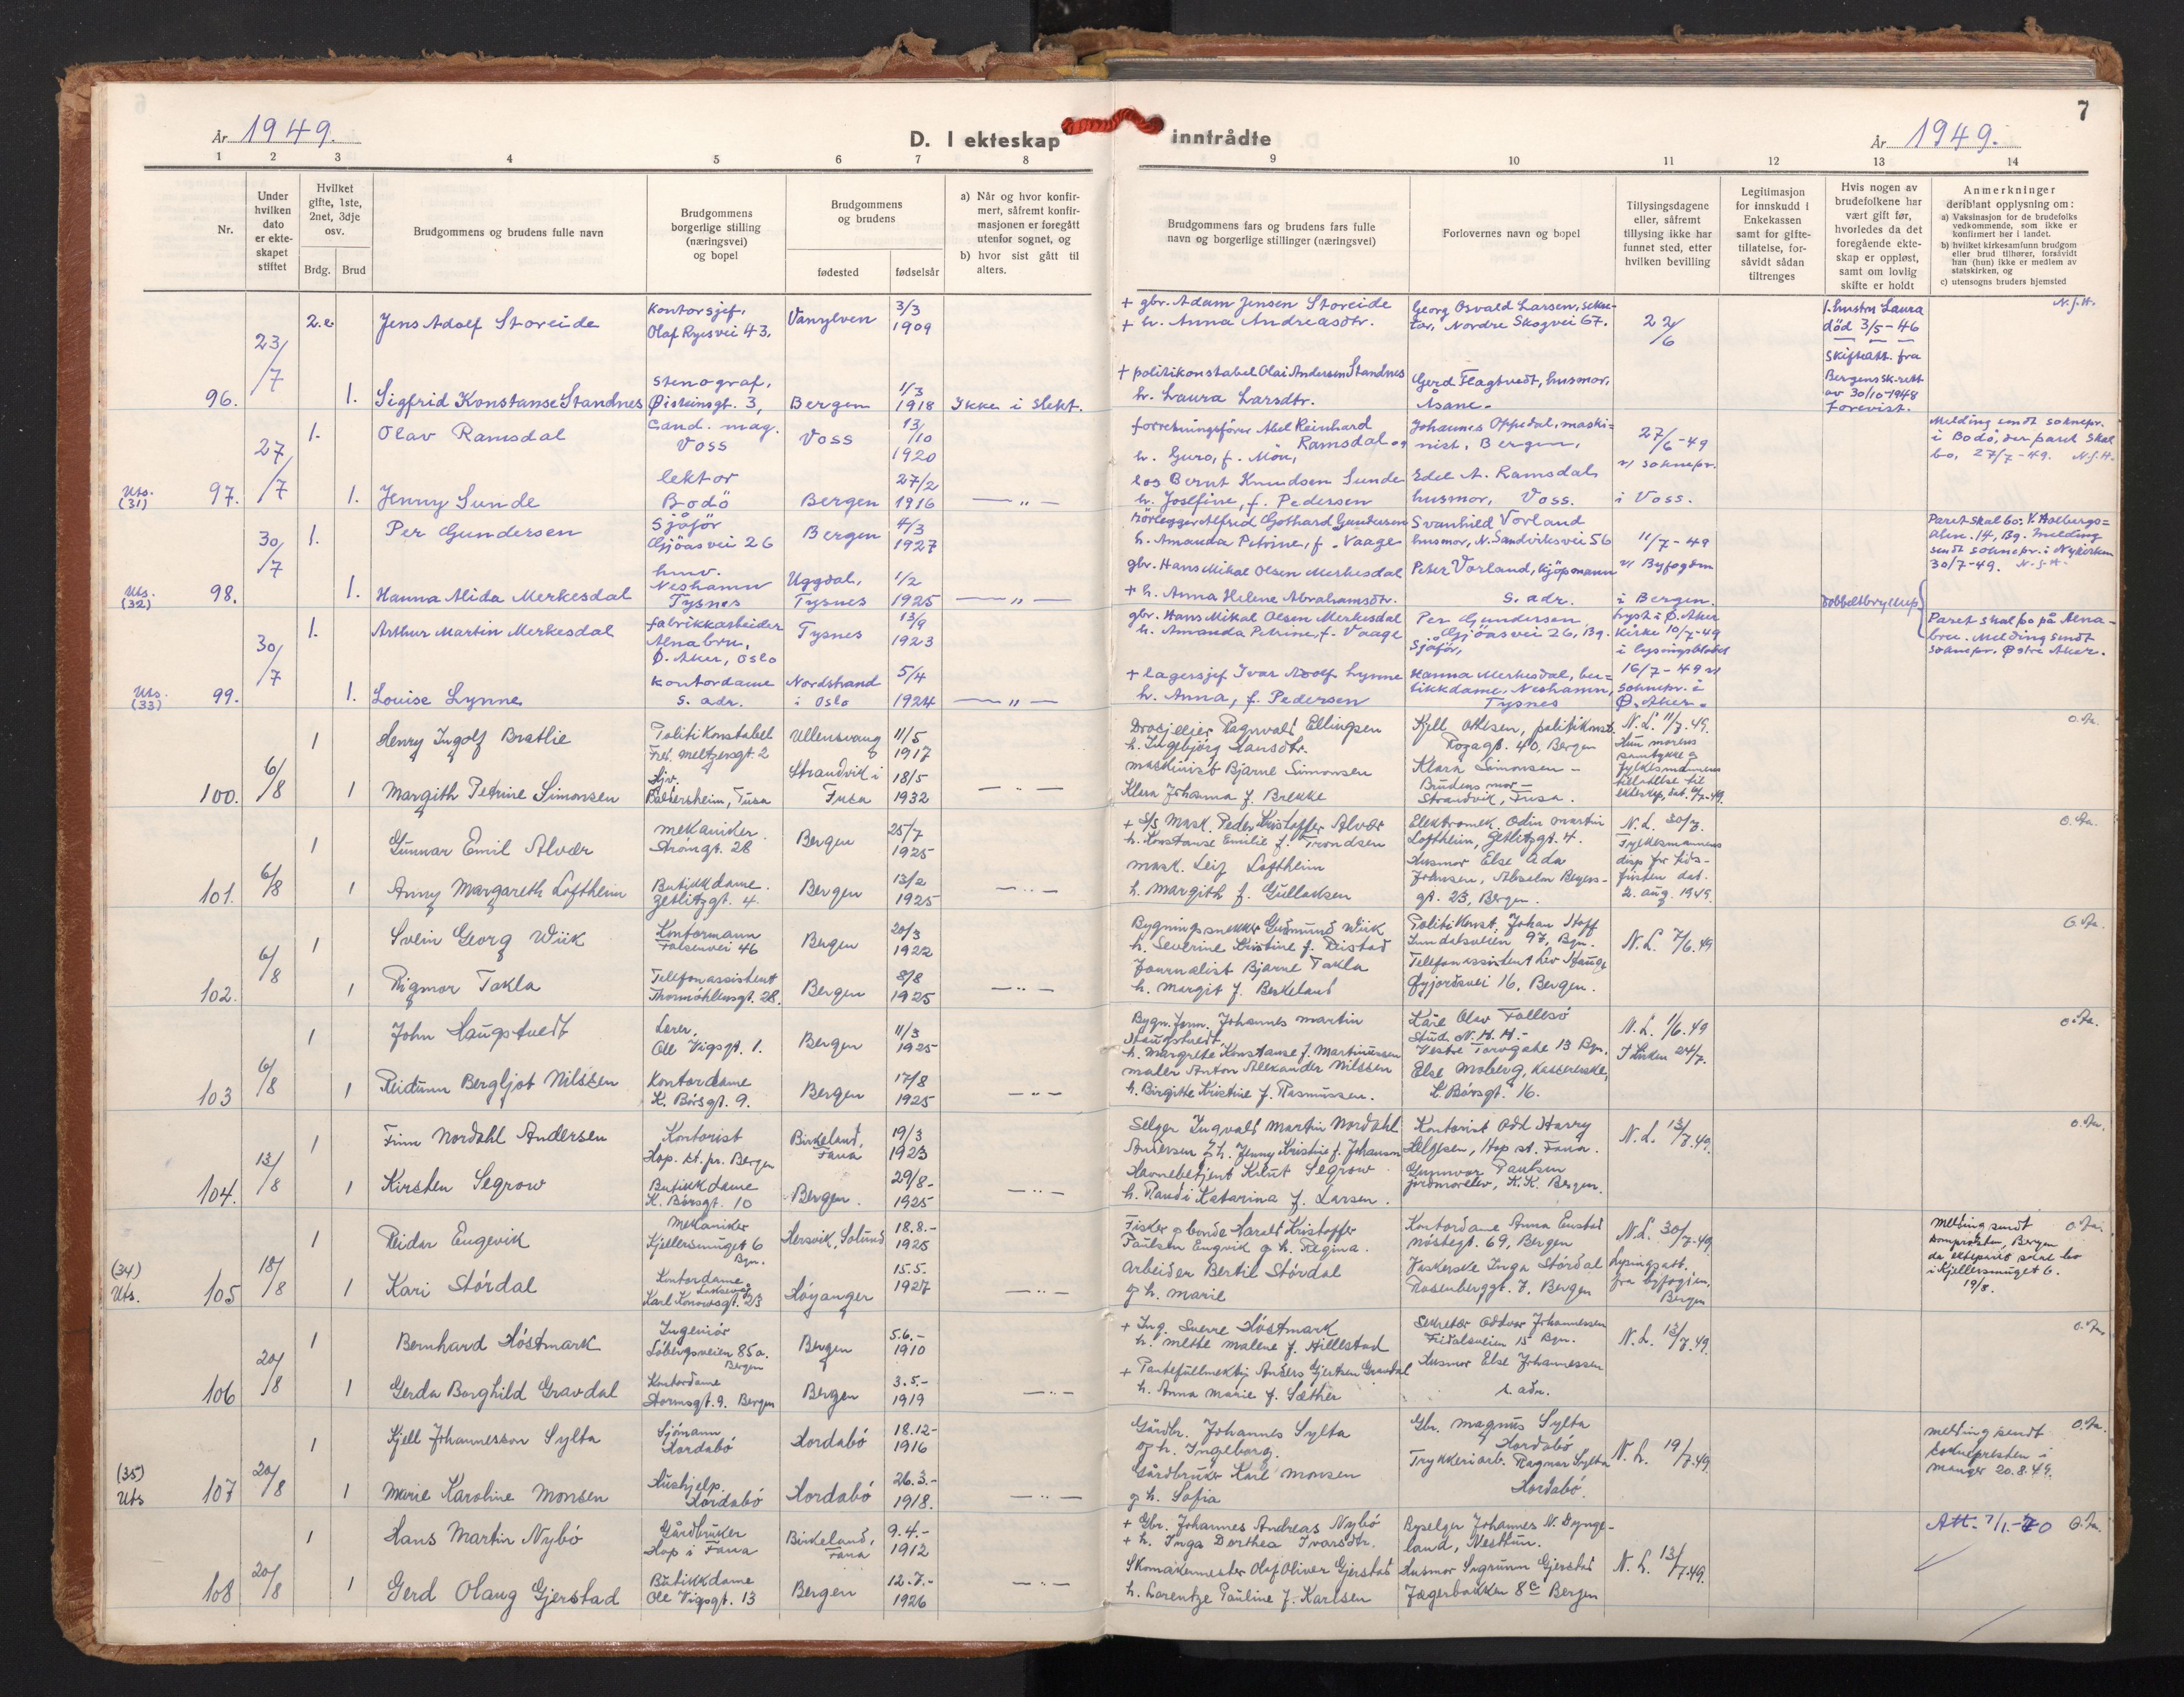 7
År 1949.
D. I ekteskap inntrådte
År 1949.
1 2 3 4 5 6 7 8 9 10 11 12 13 14
Nr.
Under hvilken dato er ekteskapet stiftet
Hvilket gifte, 1ste, 2net, 3dje osv.
Brdg. Brud
Brudgommens og brudens fulle navn
Brudgommens borgerlige stilling (næringsvei) og bopel
Brudgommens og brudens
fødested fødselsår
a) Når og hvor konfirmert, såfremt konfirmasjonen er foregått utenfor sognet, og
b) hvor sist gått til alters.
Brudgommens fars og brudens fars fulle navn og borgerlige stillinger (næringsvei)
Forlovernes navn og bopel
Tillysingsdagene eller, såfremt tillysing ikke har funnet sted, etter hvilken bevilling
Legitimasjon for innskudd i Enkekassen samt for giftetillatelse, forsåvidt sådan tiltrenges
Hvis nogen av brudefolkene har vært gift før, hvorledes da det foregående ekteskap er oppløst, samt om lovlig skifte er holdt
Anmerkninger deriblant opplysning om:
a) Vaksinasjon for de brudefolks vedkommende, som ikke er konfirmert her i landet.
b) hvilket kirkesamfunn brudgom eller brud tilhører, forsåvidt han (hun) ikke er medlem av statskirken, og
c) utensogns bruders hjemsted
96. 23/7 2.e Jens Adolf Storeide
Kontorsjef, Olaf Ryesvei 43.
Vanylven 3/3 1909
+ gbr. Adam Jensen Storeide
+ h. Anna Andreasdtr.
Georg Osvald Larsen, sekretær, Nordre Skogvei 67.
22/6
1. hustru Laura død 3/5-46
Skifteatt. fra Bergens sk.rett av 30/10-1948 forevist.
N.J.H.
1. Sigfrid Konstanse Standnes
Stenograf, Øisteinsgt. 3,
Bergen 1/3 1918 Ikke i slekt.
+ politikonstabel Olai Andersen Standnes
h. Laura Larsdtr.
Gerd Flagtvedt, husmor, Åsane.
Uts. (31) 97. 27/7 1. Olav Ramsdal
Cand. mag. Voss
Voss 13/10 1920
forretningsfører Abel Reinhard Ramsdal og
h. Guro, f. Møn,
Johannes Oppedal, maskinist, Bergen,
27/6-49 v/ soknepr. i Voss.
Melding sendt soknepr. i Bodø, der paret skal bo, 27/7-49. N.J.H.
1. Jenny Sunde
lektor Bodö
Bergen 27/2 1916 — " —
los Bernt Knudsen Sunde
h. Josefine, f. Pedersen
Edel A. Ramsdal, husmor, Voss.
Uts. (32) 98. 30/7 1. Per Gundersen
Sjåför Gjöasvei 26
Bergen 4/3 1927
Rörlegger Alfred Gothard Gundersen
h. Amanda Petrine, f. Vaage
Svanhild Vorland husmor, N. Sandviksvei 56
11/7-49 v/ Byfogden i Bergen.
Paret skal bo: V. Holbergsalm. 14, Bg. Melding sendt soknepr. i Nykirken 30/7-49. N.J.H.
1. Hanna Alida Merkesdal
hmv. Neshamn Tysnes
Uggdal, Tysnes 1/2 1925 — " —
gbr. Hans Mikal Olsen Merkesdal
+ h. Anna Helene Abrahamsdtr.
Peter Vorland, kjöpmann s. adr.
Dobbeltbryllup
Uts. (33) 99. 30/7 1. Arthur Martin Merkesdal
fabrikkarbeider Alnabru, Ø. Aker, Oslo
Tysnes 13/9 1923
gbr. Hans Mikal Olsen Merkesdal
h. Amanda Petrine, f. Vaage
Per Gundersen, Gjöasvei 26, Bg. Sjåför,
Lyst i Ø. Aker kirke 10/7-49 i lysningsbladet 16/7-49 v/ soknepr. i Ø. Aker.
Paret skal bo på Alnabru. Melding sendt soknepr. Østre Aker.
1. Louise Lynne
kontordame s. adr.
Nordstrand i Oslo 5/4 1924 — " —
+ lagersjef Ivar Adolf Lynne
h. Anna, f. Pedersen
Hanna Merkesdal, butikkdame, Neshamn, Tysnes
100. 6/8 1 Henry Ingolf Bratlie
Politikonstabel Fred. Meltzersgt. 2
Ullensvang 11/5 1917
Drosjeeier Ragnvald Ellingsen
h. Ingebjörg Hansdtr.
Kjell Ottesen, politikonst. Rozagt. 40, Bergen
N.L. 11/7.49.
Hun morens samtykke og fylkesmannens tillatelse til ekteskap, dat. 4/7-49.
1 Margith Petrine Simonsen
Hjv. Baldersheim, Fusa
Strandvik i Fusa 18/5 1932 — " —
Maskinist Bjarne Simonsen
Klara Johanna f. Brekke
Klara Simonsen – Brudens mor – Strandvik, Fusa.
101. 6/8 1 Gunnar Emil Alvær
Mekaniker. Strömgt. 28
Bergen 25/7 1925
+ S/S Mask. Peder Kristoffer Alvær
h. Konstanse Emilie f. Trondsen
Elektromek. Odin Martin Loftheim, Zetlitzgt. 4.
N.L. 30/7.
Fylkesmannens disp. for tidsfristen dat. 2. aug. 1949.
1 Anny Margareth Loftheim
Butikkdame. Zetlitzgt. 4.
Bergen 13/2 1925 — " —
Mask. Leif Loftheim
h. Margith f. Gullaksen
Husmor Else Ada Johnsen, Absalon Beyersgt. 23, Bergen.
102. 6/8 1 Svein Georg Wiik
Kontormann Falsensvei 46
Bergen 20/3 1922
Bygningssnekker Gudmund Wiik
h. Severine Kristine f. Reistad
Politikonst. Johan Hoff Lundatsveien 97, Bgn.
N.L. 7/6.49
1 Rigmor Takla
Telefonassistent Thormöhlensgt. 28.
Bergen 8/8 1925 — " —
Journalist Bjarne Takla
h. Margit f. Berkeland
Telefonassistent Liv Hauge Gyjordsvei 16, Bergen.
103 6/8 1 John Haugstvedt
Lærer, Ole Vigsgt. 1.
Bergen 11/3 1925
Bygn.form. Johannes Martin Haugstvedt,
h. Margrete Konstanse f. Martinussen
Kåre Olav Tollesö Stud. N.H.H. – Vestre Torvgate 13 Bgn.
N.L. 1/6.49
1 Reidunn Bergljot Nilssen
Kontordame K. Børsgt. 9.
Bergen 17/8 1925 — " —
Maler Anton Alexander Nilssen
h. Birgitte Kristine f. Rasmussen.
Else Moberg, Kassererske, K. Børsgt. 16.
104. 13/8 1 Finn Nordahl Andersen
Kontorist Hop. st. pr. Bergen
Birkeland, Fana 19/3 1923
Selger Ingvald Martin Nordahl Andersen & h. Jenny Kristine f. Johansen
Kontorist Odd Harry Helgesen, Hop st. Fana.
N.L. 13/7.49.
1 Kirsten Segrow
Butikkdame K. Børsgt. 10
Bergen. 29/8- 1925 — " —
Havnebetjent Knut Segrow
h. Randi Katarina f. Larsen.
Gunnvor Paulsen jordmorelev, K.K. Bergen.
(34) Uts. 105 18/8 1 Reidar Eugevik
Mekaniker Kjellersmuget 6 Bgn.
Hersvik, Solund 18.8.- 1925
Fisker og bonde Harald Kristoffer Paulsen Eugvik og h. Regina.
Kontordame Anna Eustad Nöstegt. 69, Bergen
N.L. 30/7-49.
Lysingsatt. fra byfogden, Bergen
Melding sendt Domprosten, Bergen da ekteparet skal bo i Kjellersmuget 6. 19/8.
1 Kari Stördal
Kontordame Laksevåg Karl Konowsgt. 23
Höyanger 15.5. 1927 — " —
Arbeider Bertil Stördal og h. Marie
Vaskerske Inga Stördal Rosenberggt. 7, Bergen
106 20/8 1 Bernhard Höstmark
Ingeniör Löbergsveien 85a. Bergen
Bergen 5.6.- 1910
+ Ing. Sverre Höstmark
h. Mette Malene f. Hillestad
Sekretær Oddvar Johannessen Fridalsveien 15 Bgn.
N.L. 13/7.49.
1 Gerda Borghild Gravdal
Kontordame Stormsgt. 9. Bergen
Bergen 3.5.- 1919 — " —
+ Pantefullmektig Anders Gjertsen Gravdal
h. Anna Marie f. Sæther
Husmor Else Johannessen s. adr.
(35) Uts 107 20/8 1 Kjell Johannesson Sylta
Sjömann Hordabö
Hordabö 18.12- 1916
Gårdbr. Johannes Sylta og h. Ingeborg.
Gbr. Magnus Sylta Hordabö
N.L. 19/7.49.
Melding sendt sokneprestn i Manger 20.8.49.
1 Marie Karoline Monsen
Hushjelp. Hordabö
Hordabö 26.3.- 1918. — " —
Gårdbruker Karl Monsen og h. Sofia
Trykkeriarb. Ragnar Sylta Hordabö.
108 20/8 1 Hans Martin Nybö
Gårdbruker Hop i Fana
Birkeland, Fana 9.4.- 1912
+ Gbr. Johannes Andreas Nybö
+ h. Inga Dorthea Ivarsdtr.
Byselger Johannes N. Dyngeland, Nesttun.
N.L. 13/7.49.
Att. 7/1.-70
1 Gerd Olaug Gjerstad
Butikkdame Ole Vigsgt. 13
Bergen 12.7.- 1926 — " —
Skomakermester Olaf Oliver Gjerstad
h. Lorentze Pauline f. Karlsen
Husmor Sigrunn Gjerstad Jægerbakken 8c Bergen